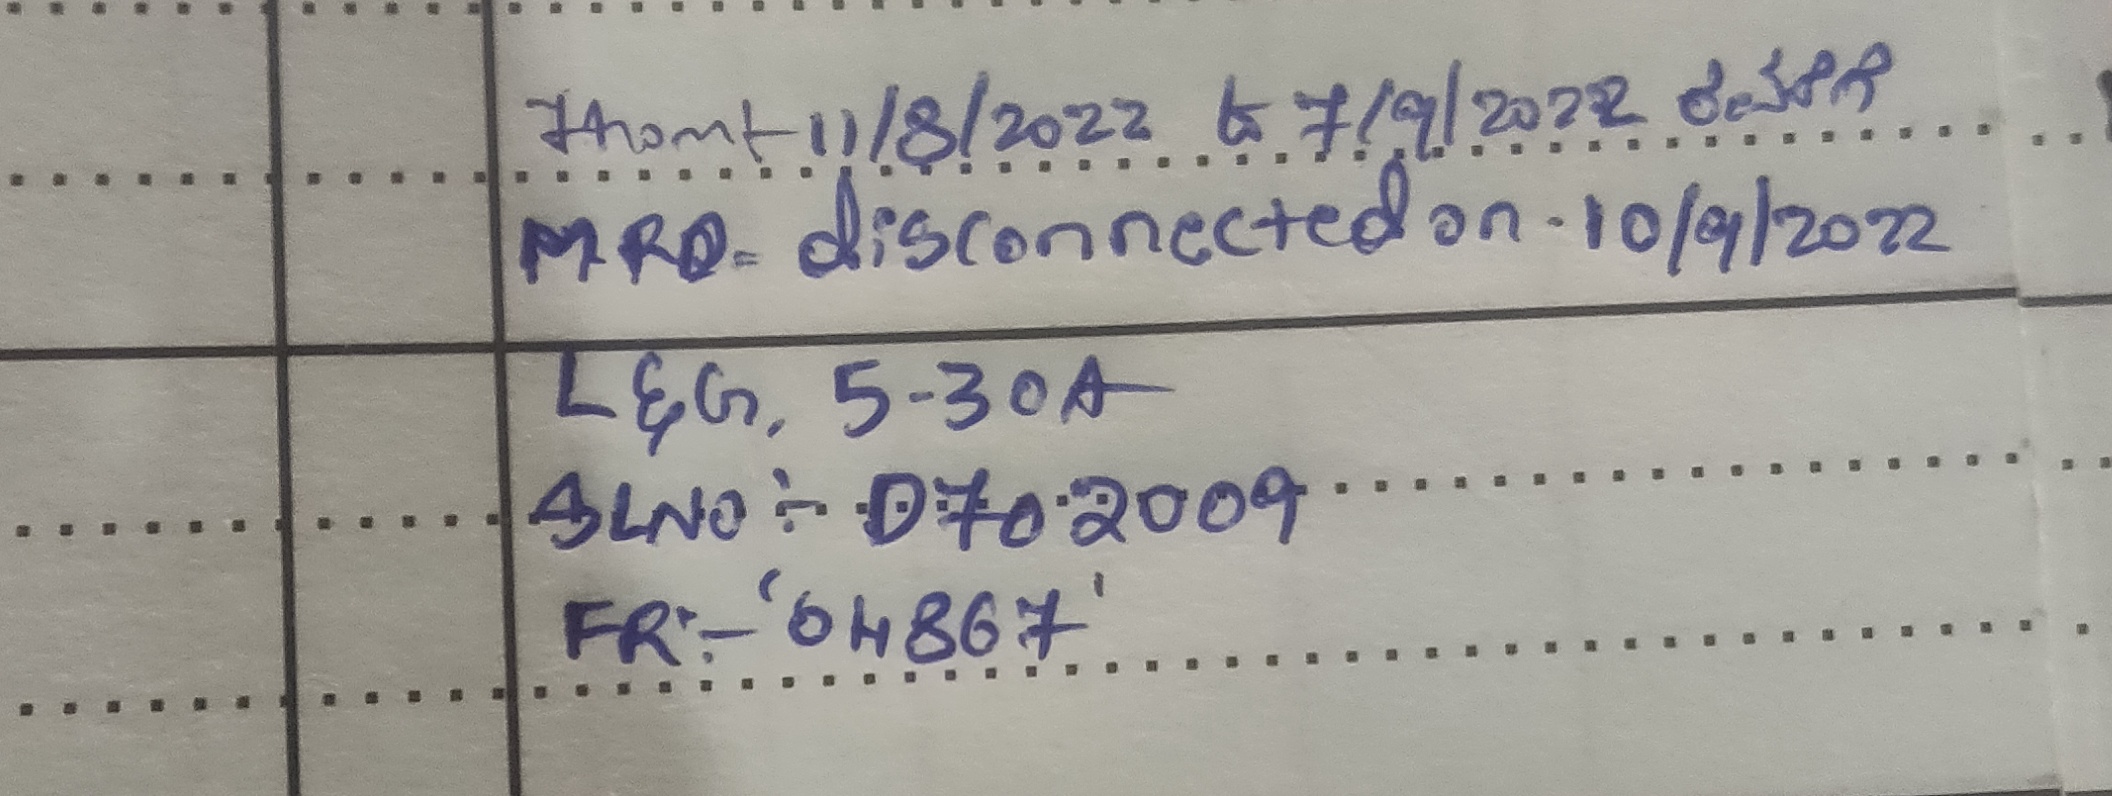 11/8/2022 to 7/9/2022
MRD- disconnected on - 10/9/2022
L&G, 5-30A
SLNO :- D702009
FR:- '04867'